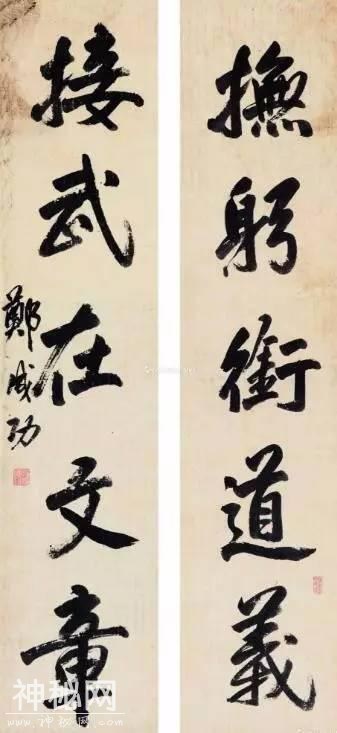 撫躬銜道義
接武在文章
鄭成功
神秘网